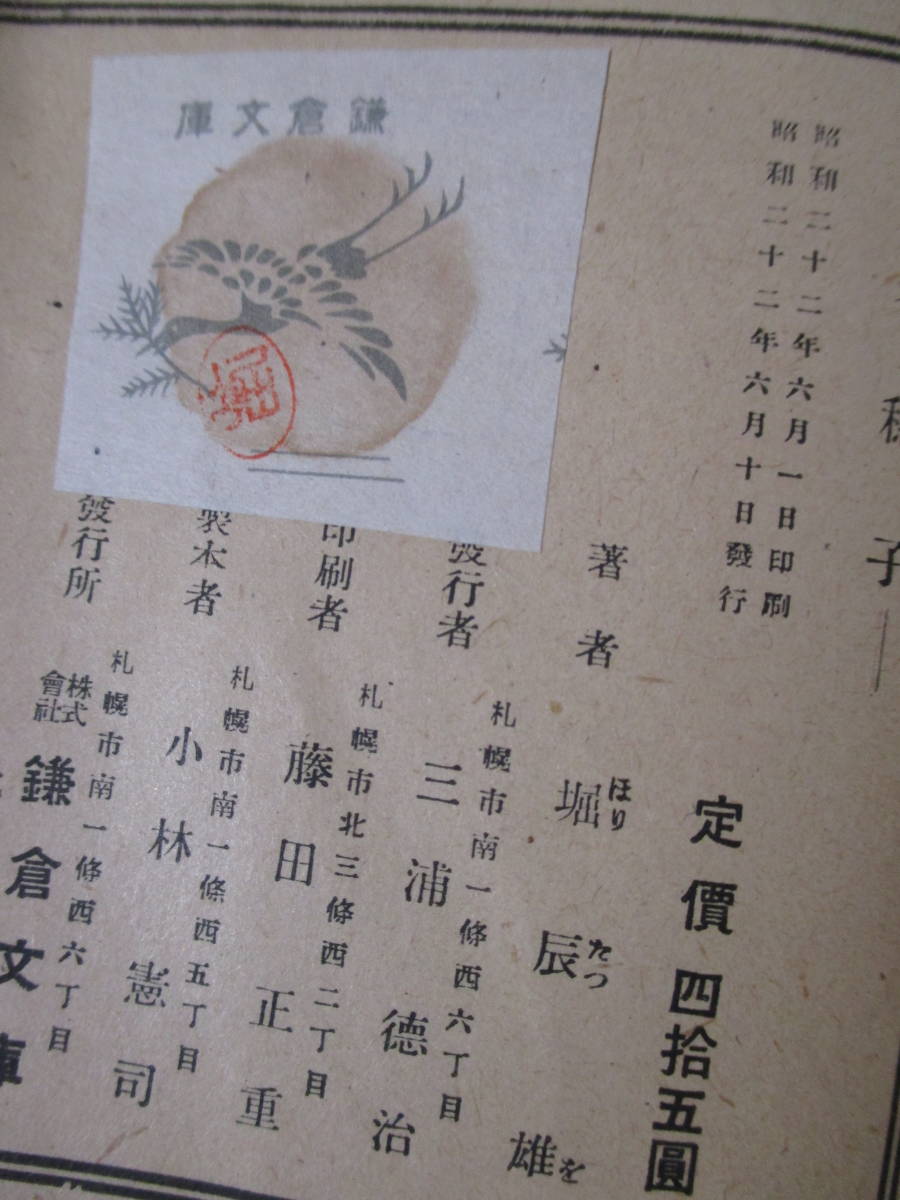 子
昭和二十二年六月一日印刷
昭和二十二年六月十日發行
定價 四拾五圓
著者 堀辰雄
ほり たつ を
發行者
札幌市南一條西六丁目
三浦德治
印刷者
札幌市北三條西二丁目
藤田正重
製本者
札幌市南一條西五丁目
小林憲司
發行所
札幌市南一條西六丁目
株式會社 鎌倉文庫
鎌倉文庫
堀